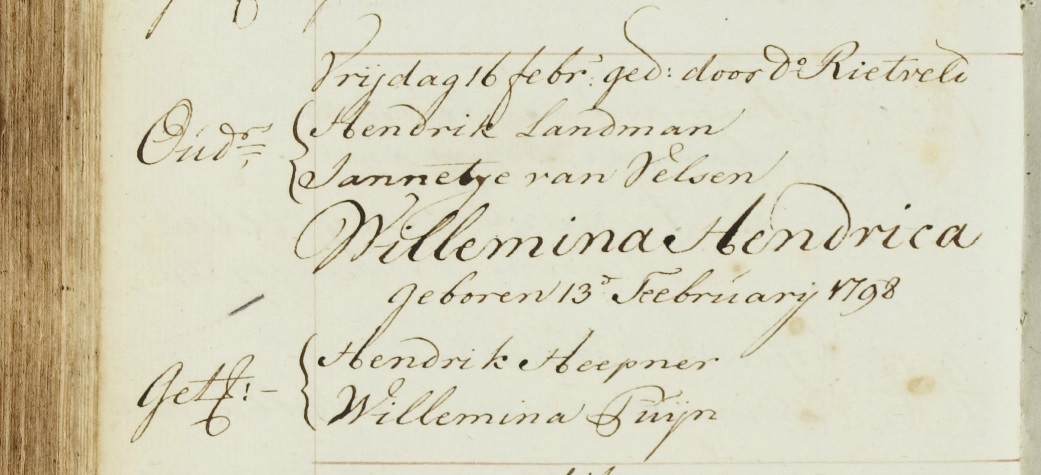 Vrijdag 16 febr: ged: door Ds Rietveld
Oudrs
Hendrik Landman
Jannetje van Velsen
Willemina Hendrica
geboren 13e February 1798
Get:
Hendrik Heepner
Willemina